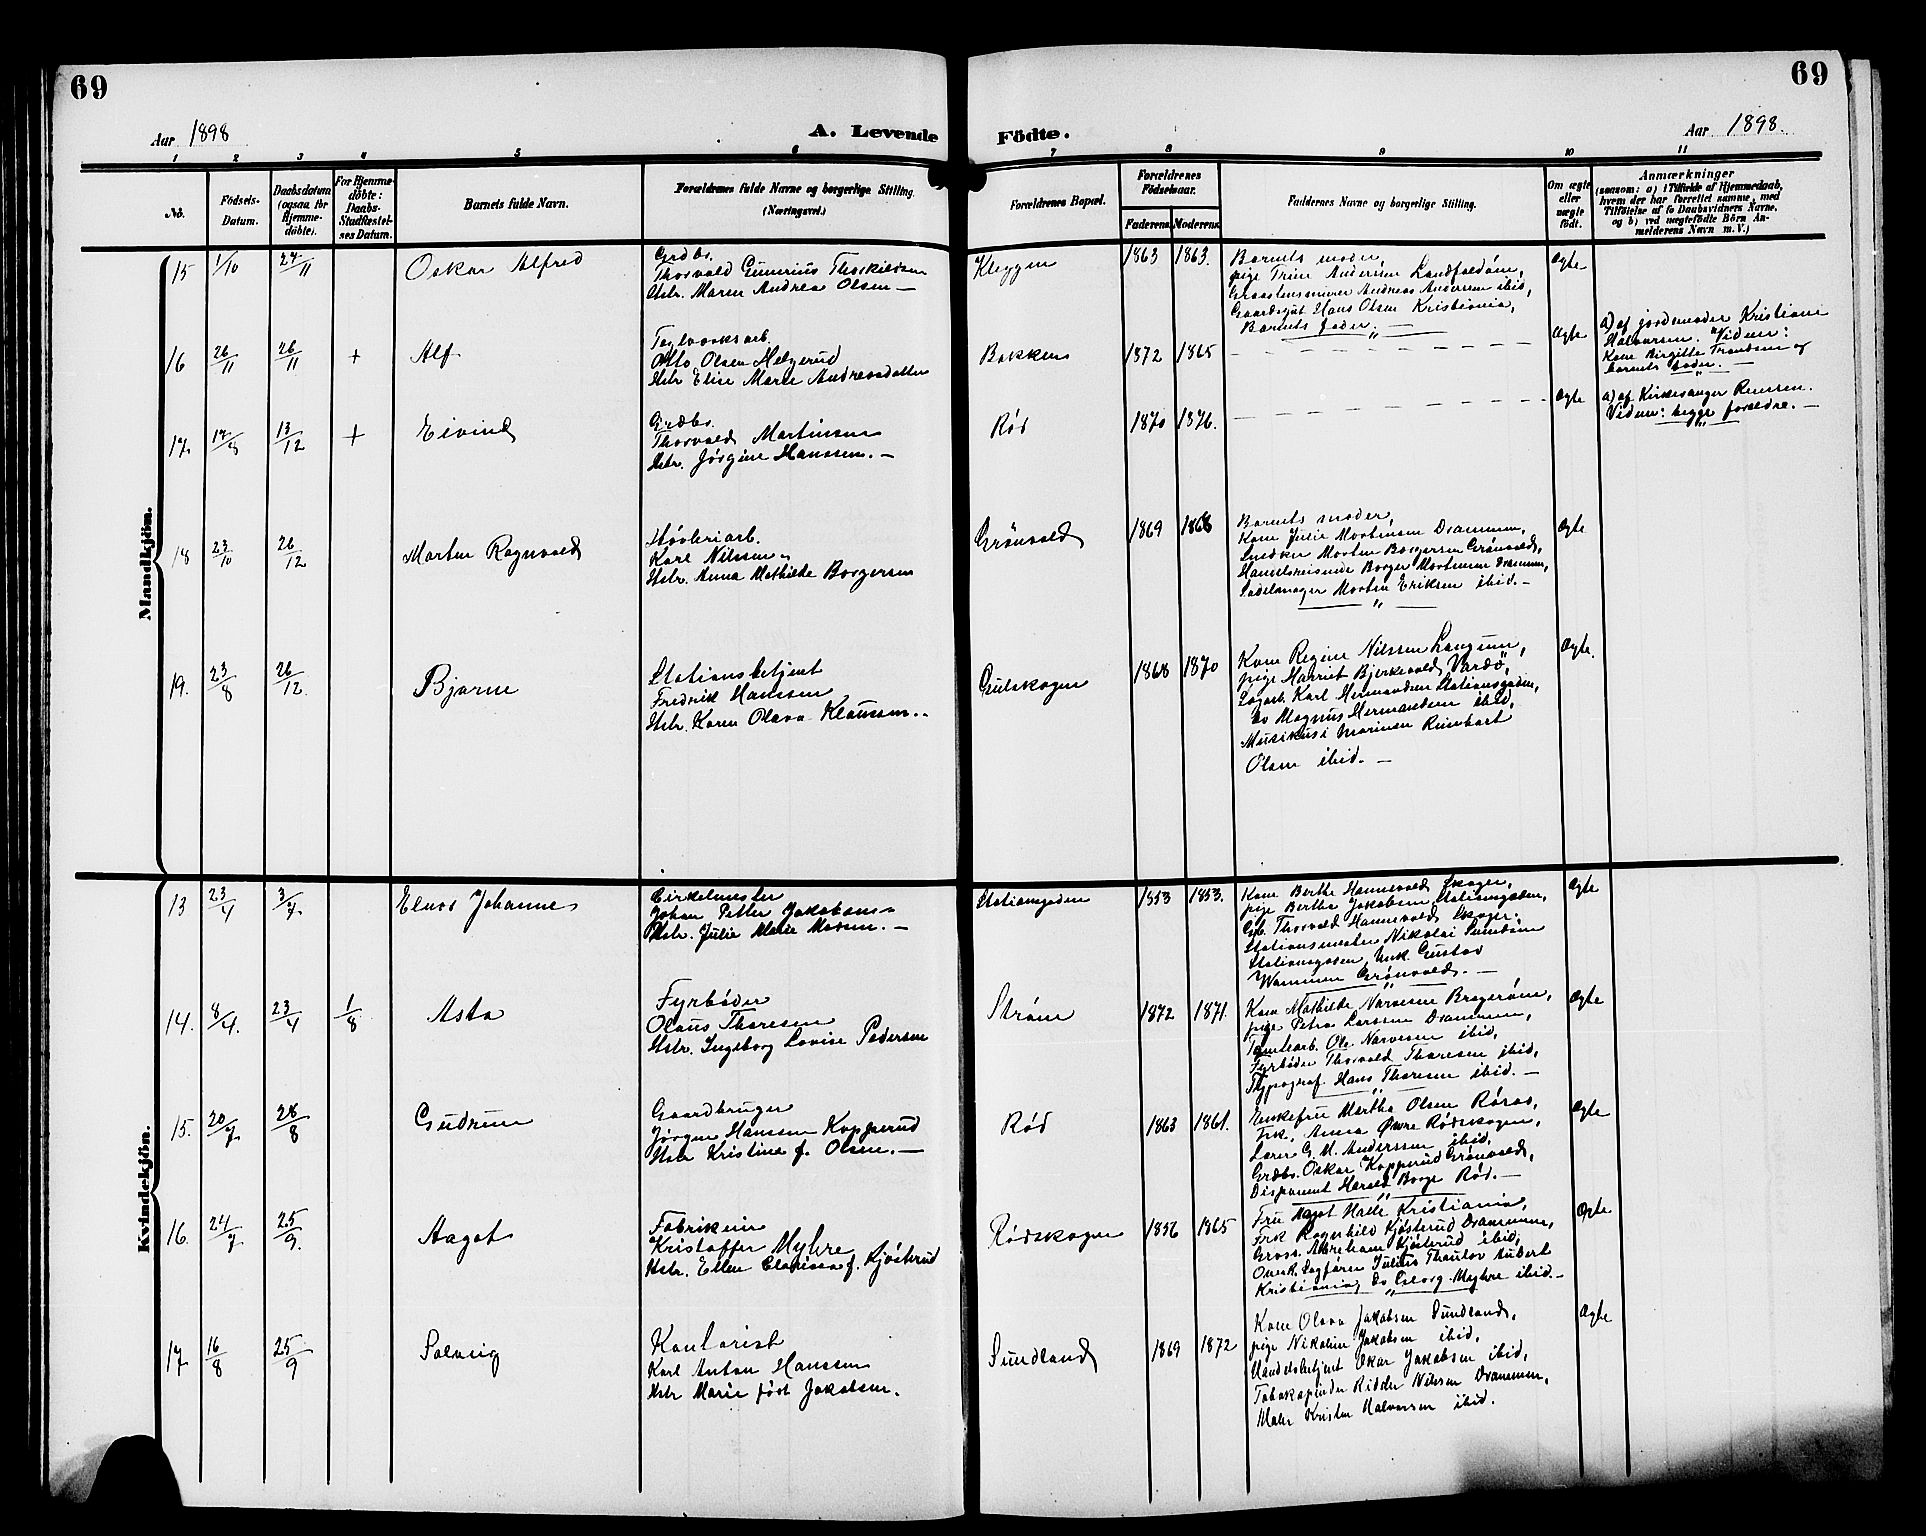 69
69
Aar 1898
A. Levende
Födte.
Aar 1898.
1 2 3 4 5 6 7 8 9 10 11
No.
Födsels-
Datum.
Daabsdatum
(ogsaa for
Hjemme-
döbte).
For Hjemme-
döbte:
Daabs-
Stadfæstel-
ses Datum.
Barnets fulde Navn.
Forældrenes fulde Navne og borgerlige Stilling.
(Næringsvei.)
Forældrenes Bopæl.
Forældrenes
Födselsaar.
Faderens Moderens
Faddernes Navne og borgerlige Stilling.
Om ægte
eller
uægte
födt.
Anmærkninger
(saasom: a) i Tilfælde af Hjemmedaab,
hvem der har forrettet samme, med
Tilföielse af to Daabsvidners Navne,
og b) ved uægtefödte Börn An-
melderens Navn m. V.)
Mandkjön.
15 1/10 27/11 Oskar Alfred
Grdbr.
Thorvald Gunerius Thorkildsen
Hstr. Maren Andrea Olsen —
Kleggen 1863 1863.
Barnets moder,
pige Trine Andersen Landfaldöen,
Graastensmurer Andreas Andersen ibid,
Gaardsgut Hans Olsen Kristiania,
Barnets fader. —
Ægte
16 26/11 26/11 + Alf
Teglværksarb.
Otto Olsen Helgerud
Hstr Elise Marie Andreasdatter
Bakken 1872 1865
Ægte
a) af jordemoder Kristiane
Halvorsen. Vidner:
Kone Birgitte Trondsen og
barnets fader. —
17 17/8 13/12 + Eivind
Grdbr.
Thorvald Martinsen
Hstr. Jörgine Hanssen. —
Röd 1870 1876.
Ægte
a) af Kirkesanger Reiersen.
Vidner: begge forældre. —
18 23/10 26/12 Morten Ragnvald
Hövleriarb.
Karl Nilssen
Hstr. Anna Mathilde Borgersen
Grönvold 1869 1868
Barnets moder,
Kone Julie Mortensen Drammen,
Snedker Morten Borgersen Grönvold,
Handelsreisende Borger Mortensen Drammen,
Sadelmager Morten Eriksen ibid. —
Ægte
19. 23/8 26/12. Bjarne
Stationsbetjent
Fredrik Hanssen
Hstr. Karen Olava Klaussen..
Gulskogen 1868 1870
Kone Regine Nilssen Langum,
pige Harriet Bjerkevold Vardö,
Lagarb. Karl Hermandsen Stationsgaden,
do Magnus Hermansen ibid,
Musikus i Marinen Reinhart
Olsen ibid. —
Ægte.
Kvindekjön.
13 23/4 3/7 Elnor Johanne
Cirkelmester
Johan Petter Jakobsen
Hstr. Julie Marie Madsen. —
Stationsgaden 1853 1853.
Kone Berthe Hannevold Skoger,
pige Bertha Jakobsen Stationsgaden,
Grb. Thorvald Hannevold Skoger,
Stationsmester Nikolai
Stationsgaden, Gustav
Wammen Grönvold. —
Ægte
14. 8/4. 23/4 1/8 Asta
Fyrböder
Olaus Thoresen
Hstr. Ingeborg Lovise Pedersen
Ström 1872 1871.
Kone Mathilde Narvesen Bragerøen,
pige Petra Larssen Drammen,
Tomtearb. Ole Narvesen ibid,
Fyrböder Thorvald Thoresen ibid,
Typograf Hans Thoresen ibid. —
Ægte
15. 20/7 28/8 Gudrun
Gaardbruger
Jörgen Hanssen Kopperud
Hstr Kristine f. Olsen. —
Röd 1863 1861.
Enkefru Martha Olsen Röros,
Frk. Anna Övre Rödskogen,
Lærer G. M. Anderssen ibid.
Grdbr. Oskar Kopperud Grönvold,
Disponent Harald Borge Röd. —
Ægte
16. 24/7 25/9. Aagot
Fabrikeier
Kristoffer Myhre
Hstr. Ellen Clarissa f. Kjösterud
Rödskogen 1856 1865
Fru Aagot Kristiania,
Frk Ragnhild Kjösterud Drammen,
Gross. Abraham Kjösterud ibid,
Overr. Sagförer Julius Thaulov Aubert
Kristiania, do Georg Myhre ibid. —
Ægte
17 16/8 25/9 Solveig
Kontorist
Karl Anton Hanssen
Hstr Marie född Jakobsen.
Sundland 1869 1872
Kone Olava Jakobsen Sundland,
pige Nikoline Jakobsen ibid,
Handelsbetjent Oskar Jakobsen ibid,
Tobakspinder Ridder Nilssen Drammen,
Maler Kristen Halvorsen ibid.
Ægte